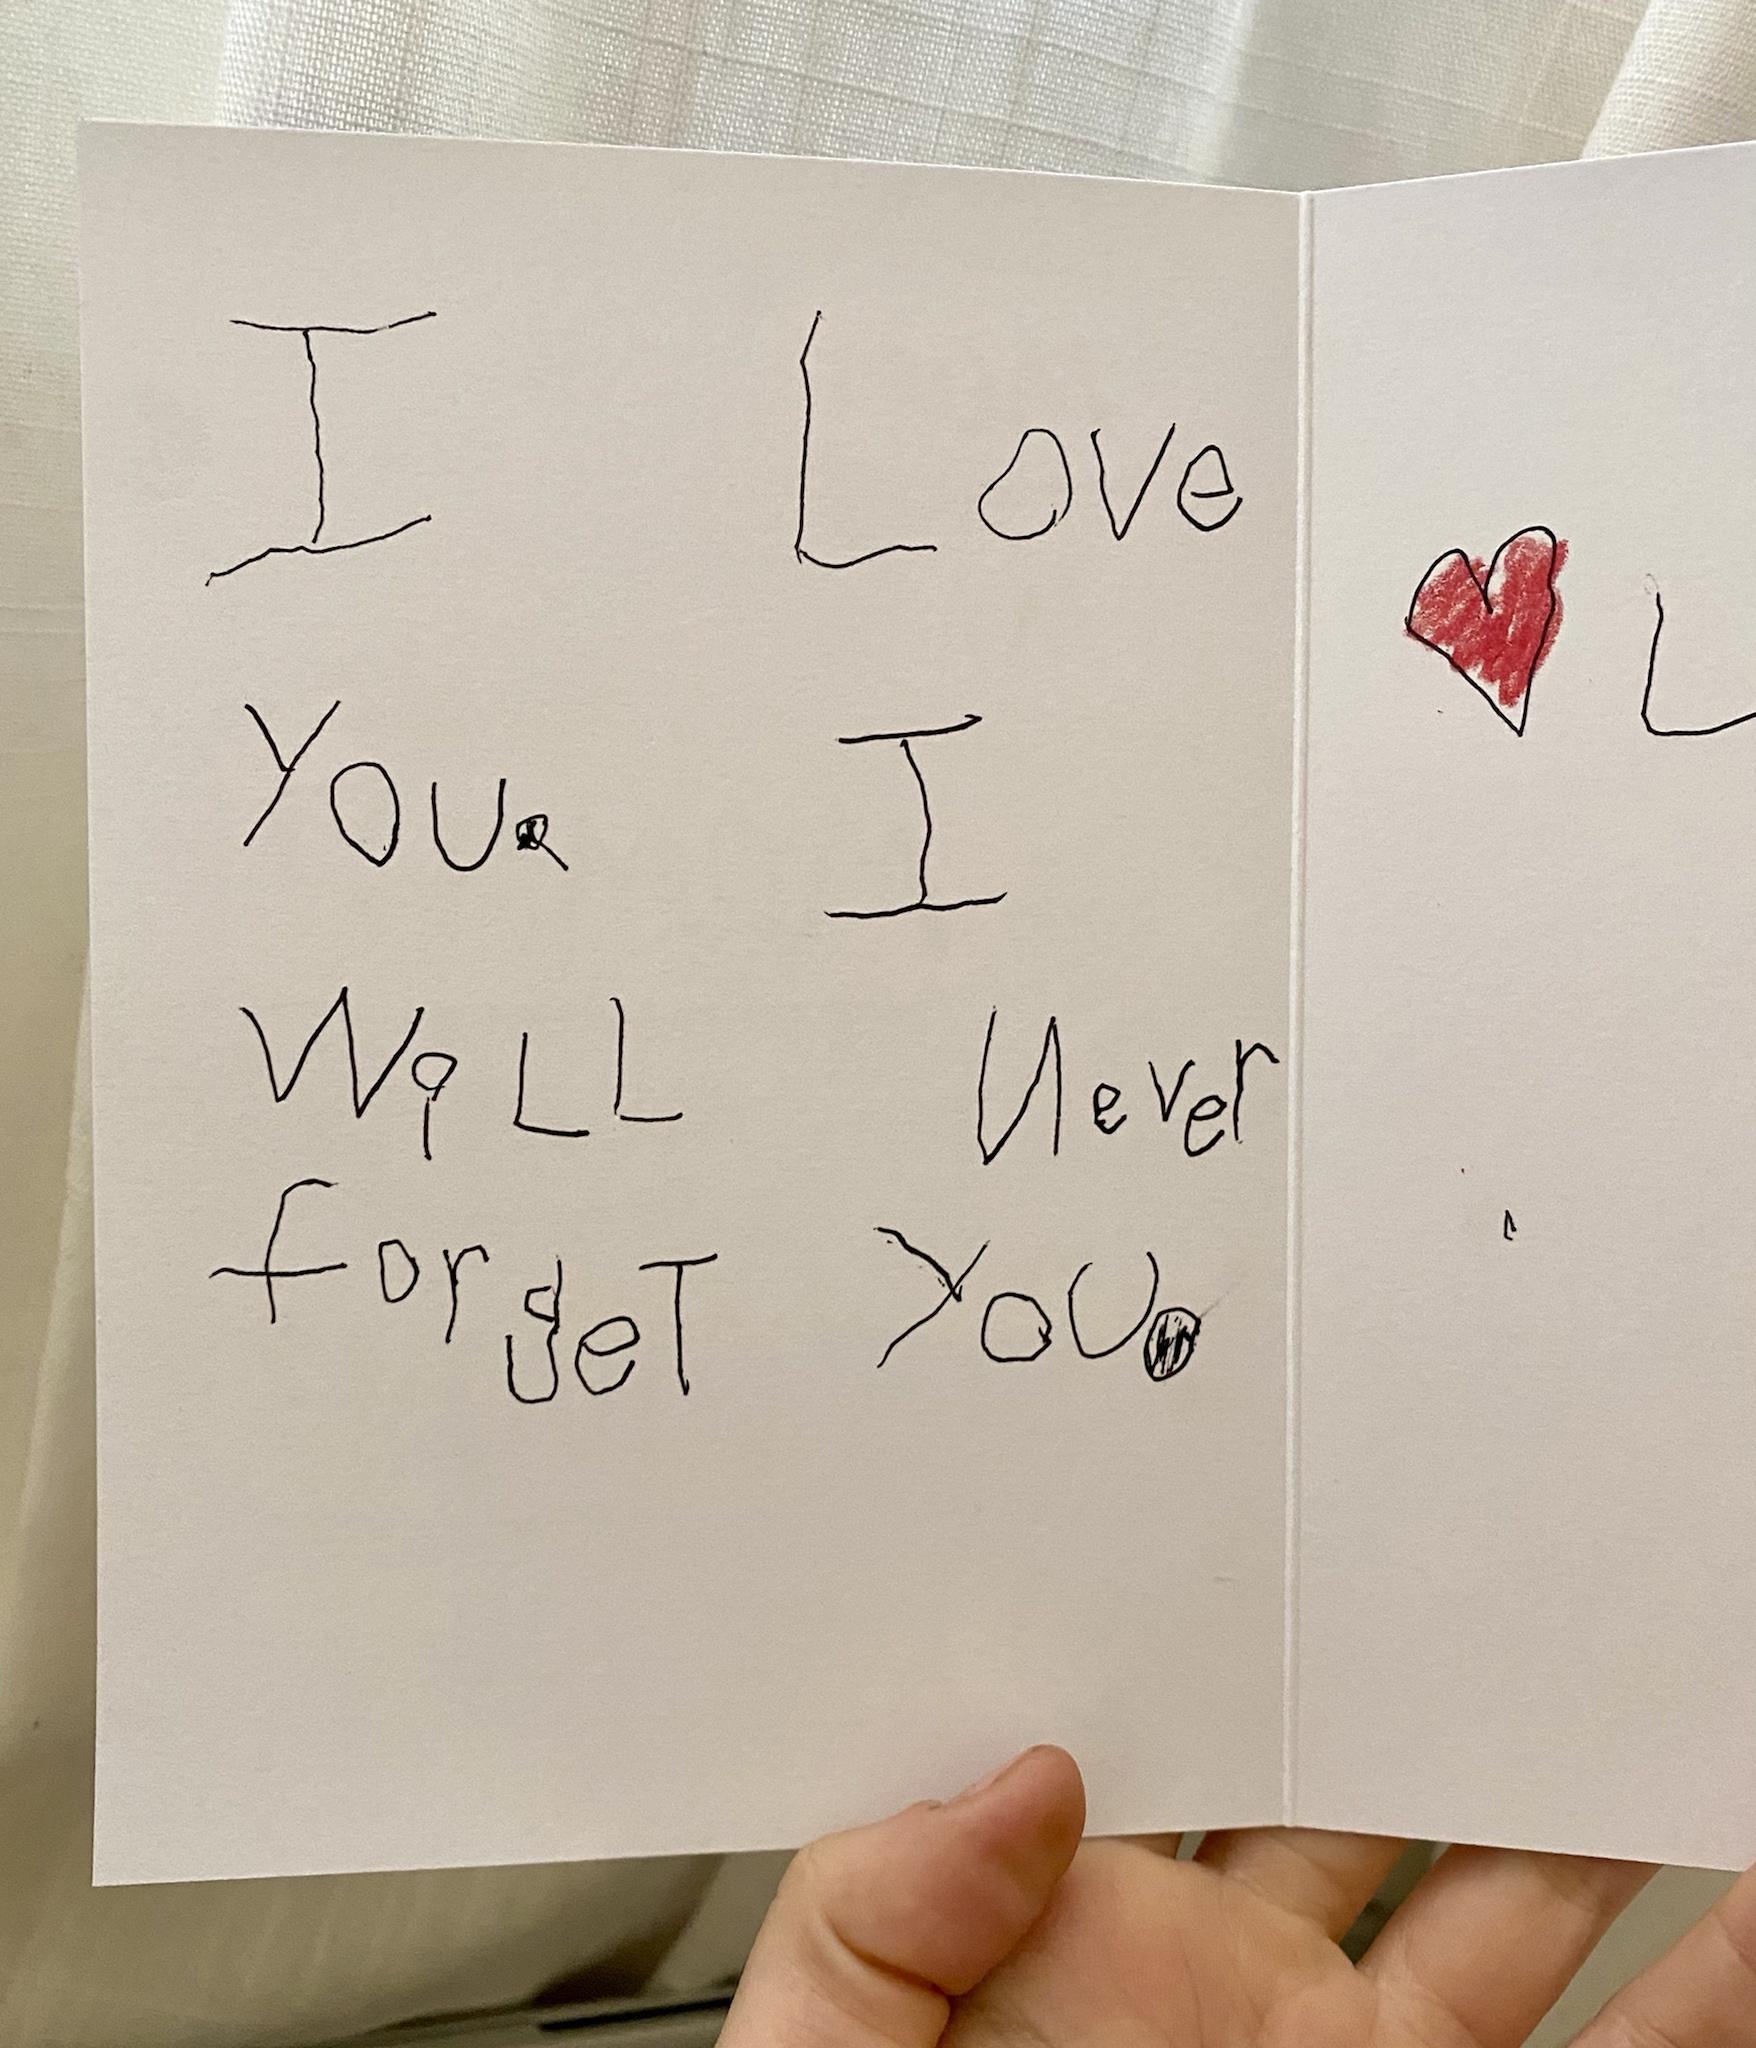 I Love
You. I
WiLL Never
forgeT You.
L